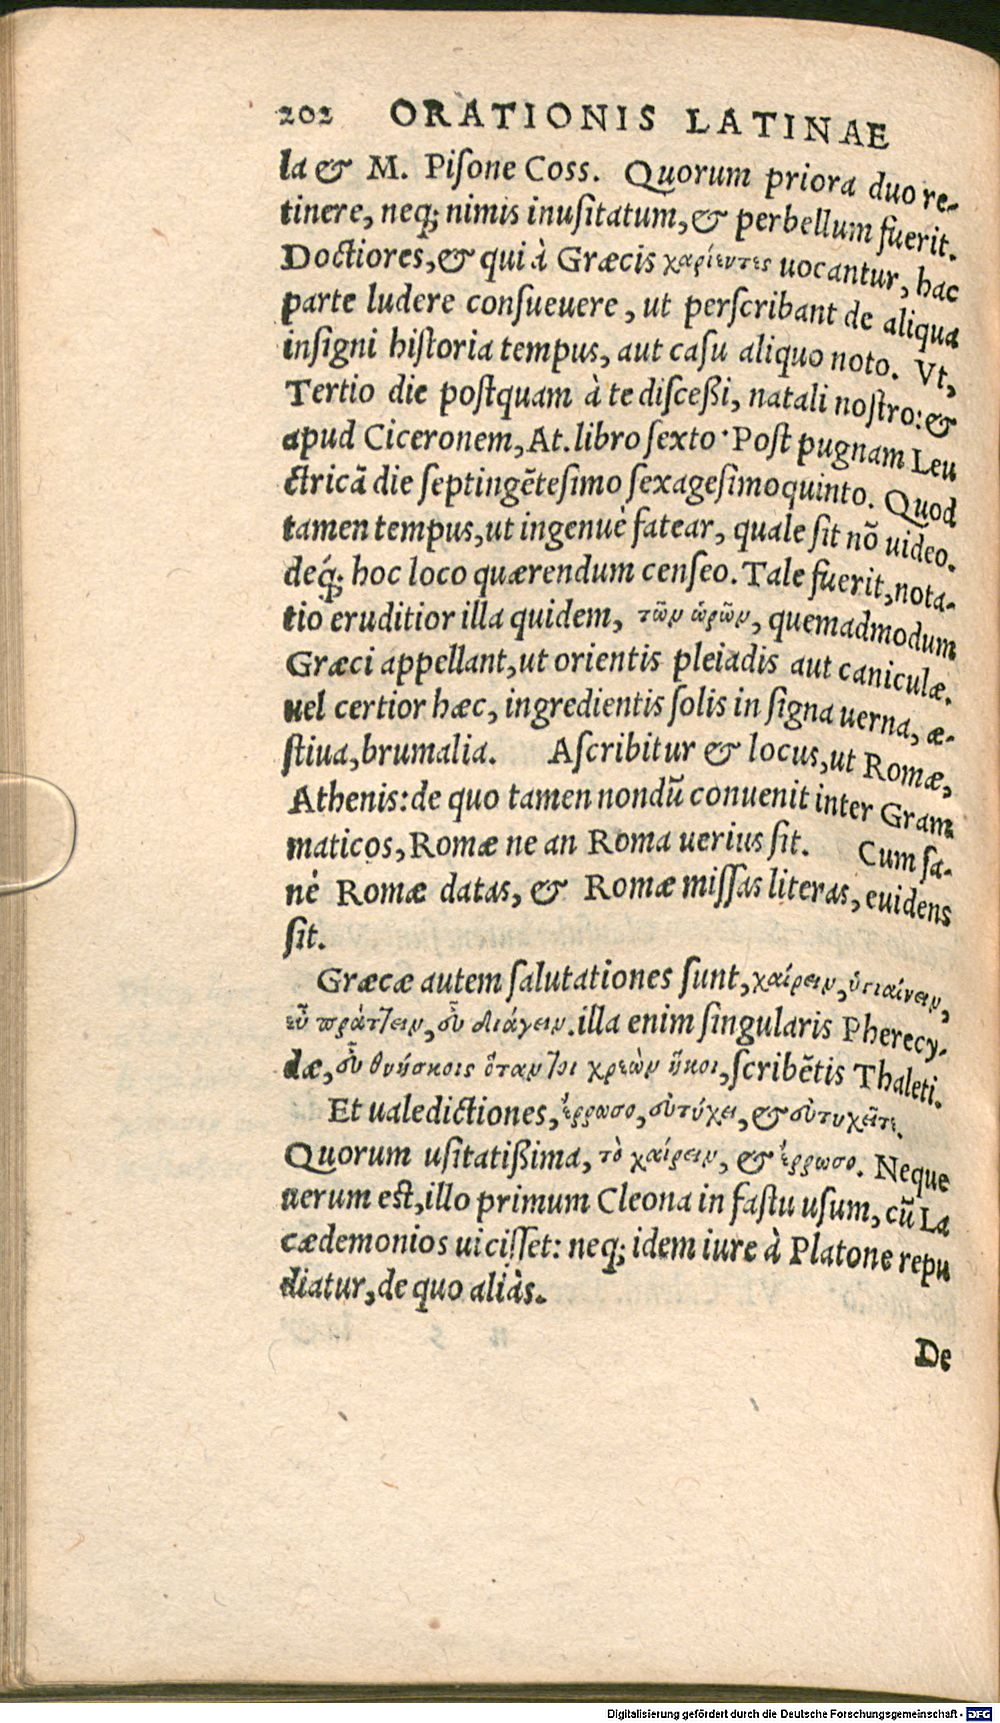 202 ORATIONIS LATINAE
la & M. Piſone Coss. Quorum priora duo re-
tinere, neq; nimis inuſitatum, & perbellum fuerit.
Doctiores, & qui à Græcis χαρίεντες uocantur, hac
parte ludere conſueuere, ut perſcribant de aliqua
inſigni hiſtoria tempus, aut caſu aliquo noto. Vt,
Tertio die poſtquam à te diſceßi, natali noſtro: &
apud Ciceronem, At. libro ſexto · Poſt pugnam Leu
ctricã die ſeptingẽteſimo ſexageſimoquinto. Quod
tamen tempus, ut ingenuè fatear, quale ſit nõ uideo.
deq́; hoc loco quærendum cenſeo. Tale fuerit, nota-
tio eruditior illa quidem, τῶν ὡρῶν, quemadmodum
Græci appellant, ut orientis pleiadis aut caniculæ.
uel certior hæc, ingredientis ſolis in ſigna uerna, æ-
ſtiua, brumalia. Aſcribitur & locus, ut Romæ,
Athenis: de quo tamen nondũ conuenit inter Gram
maticos, Romæ ne an Roma uerius ſit. Cum ſa-
nè Romæ datas, & Romæ miſſas literas, euidens
ſit.
Græcæ autem ſalutationes ſunt, χαίρειν, ὑγιαίνειν,
εὖ πράττειν, εὖ διάγειν. illa enim ſingularis Pherecy-
dæ, εὖ θνήσκοις ὅταν τοι χρεὼν ἥκοι, ſcribẽtis Thaleti.
Et ualedictiones, ἔρρωσο, εὐτύχει, & εὐτυχεῖτε.
Quorum uſitatißima, τὸ χαίρειν, & ἔρρωσο. Neque
uerum eſt, illo primum Cleona in faſtu uſum, cũ La
cædemonios uiciſſet: neq; idem iure à Platone repu
diatur, de quo aliàs.
De
Digitalisierung gefördert durch die Deutsche Forschungsgemeinschaft - DFG